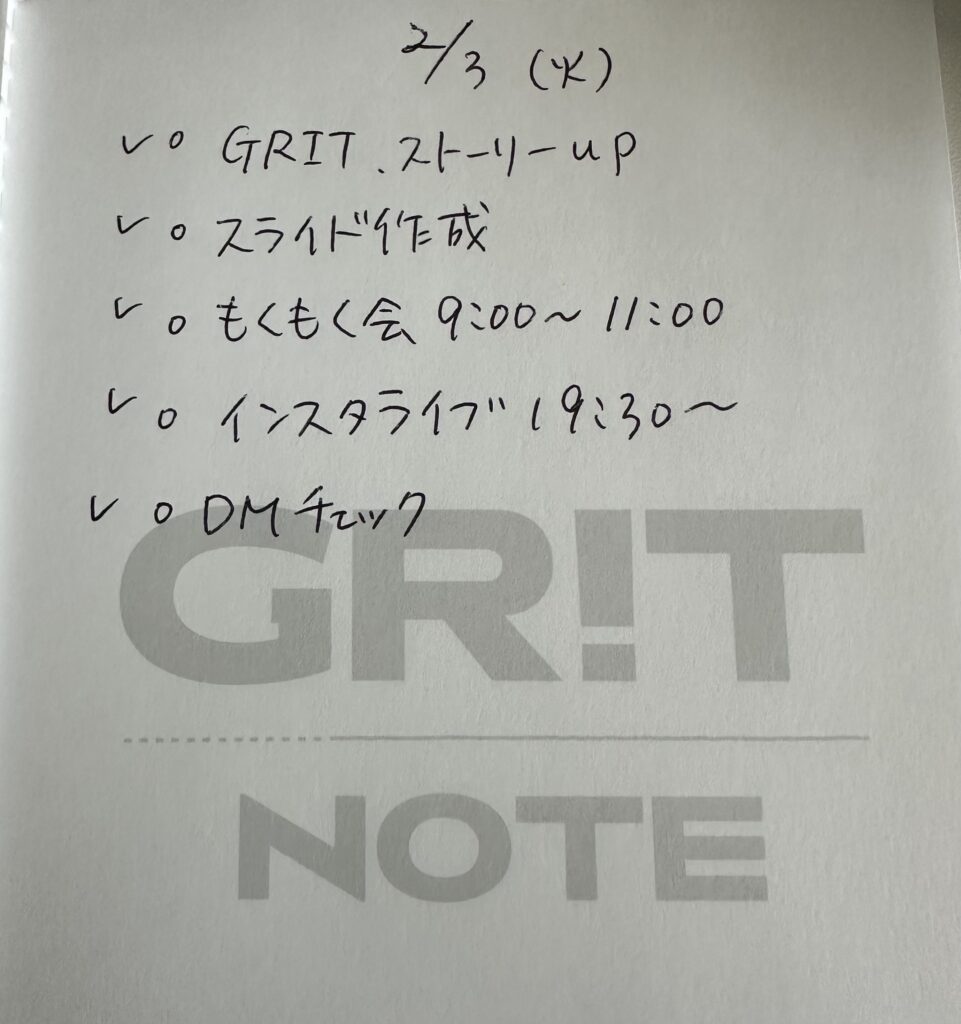 2/3 (火)
✓ ○ GRIT、ストーリーup
✓ ○ スライド作成
✓ ○ もくもく会 9:00～11:00
✓ ○ インスタライブ 19:30～
✓ ○ DMチェック
GR!T
NOTE